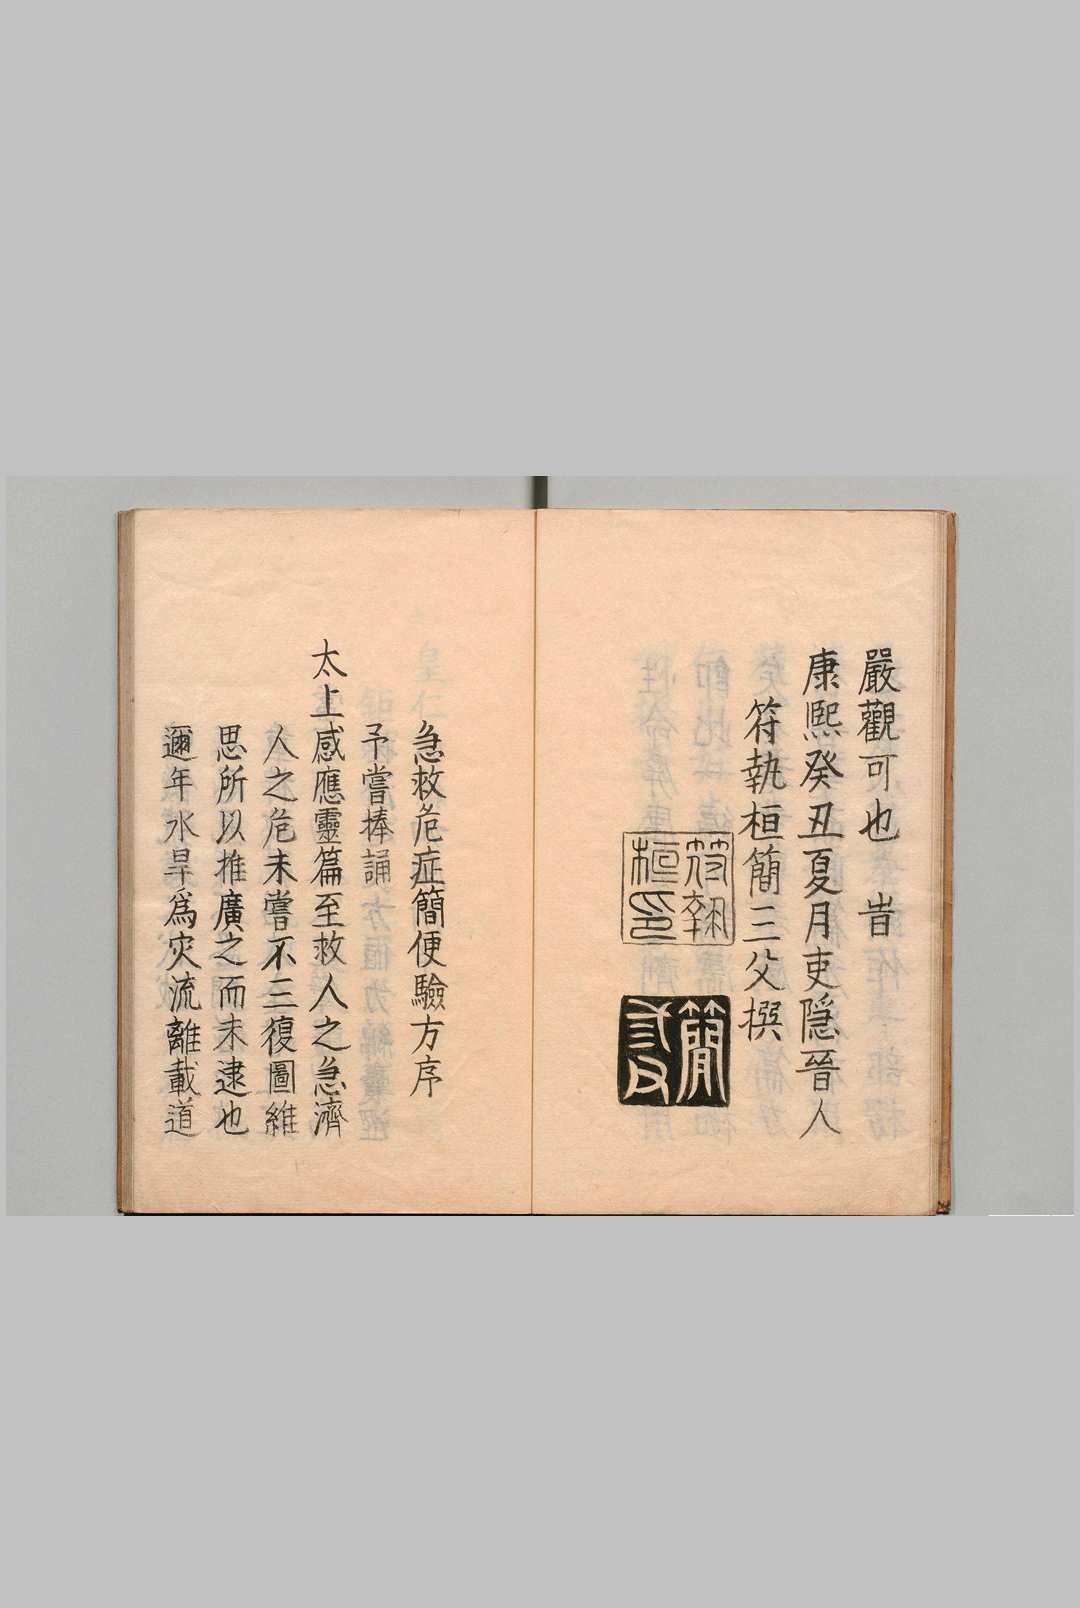 嚴觀可也　旹
康熙癸丑夏月吏隱晉人
符執桓簡三父撰
符執
桓印
簡
三父
急救危症簡便驗方序
予嘗捧誦
太上感應靈篇至救人之急濟
人之危未嘗不三復圖維
思所以推廣之而未逮也
邇年水旱爲灾流離載道